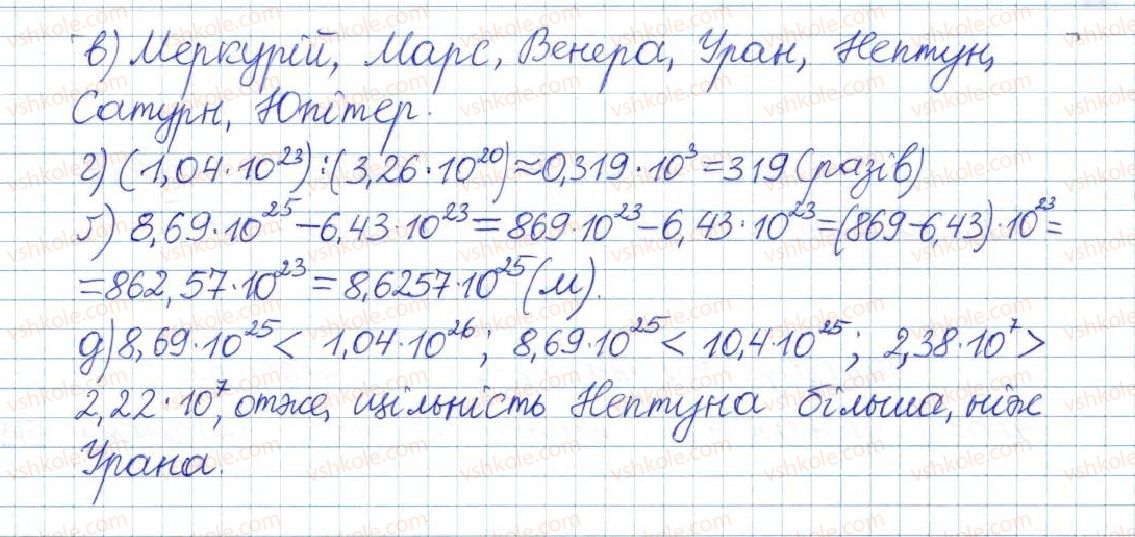 в) Меркурій, Марс, Венера, Уран, Нептун,
Сатурн, Юпітер.
г) (1,04·10²³):(3,26·10²⁰)≈0,319·10³=319 (разів)
ґ) 8,69·10²⁵−6,43·10²³=869·10²³−6,43·10²³=(869−6,43)·10²³=
=862,57·10²³=8,6257·10²⁵(м).
д) 8,69·10²⁵< 1,04·10²⁶; 8,69·10²⁵< 10,4·10²⁵; 2,38·10⁷>
2,22·10⁷, отже, щільність Нептуна більша, ніж
Урана.